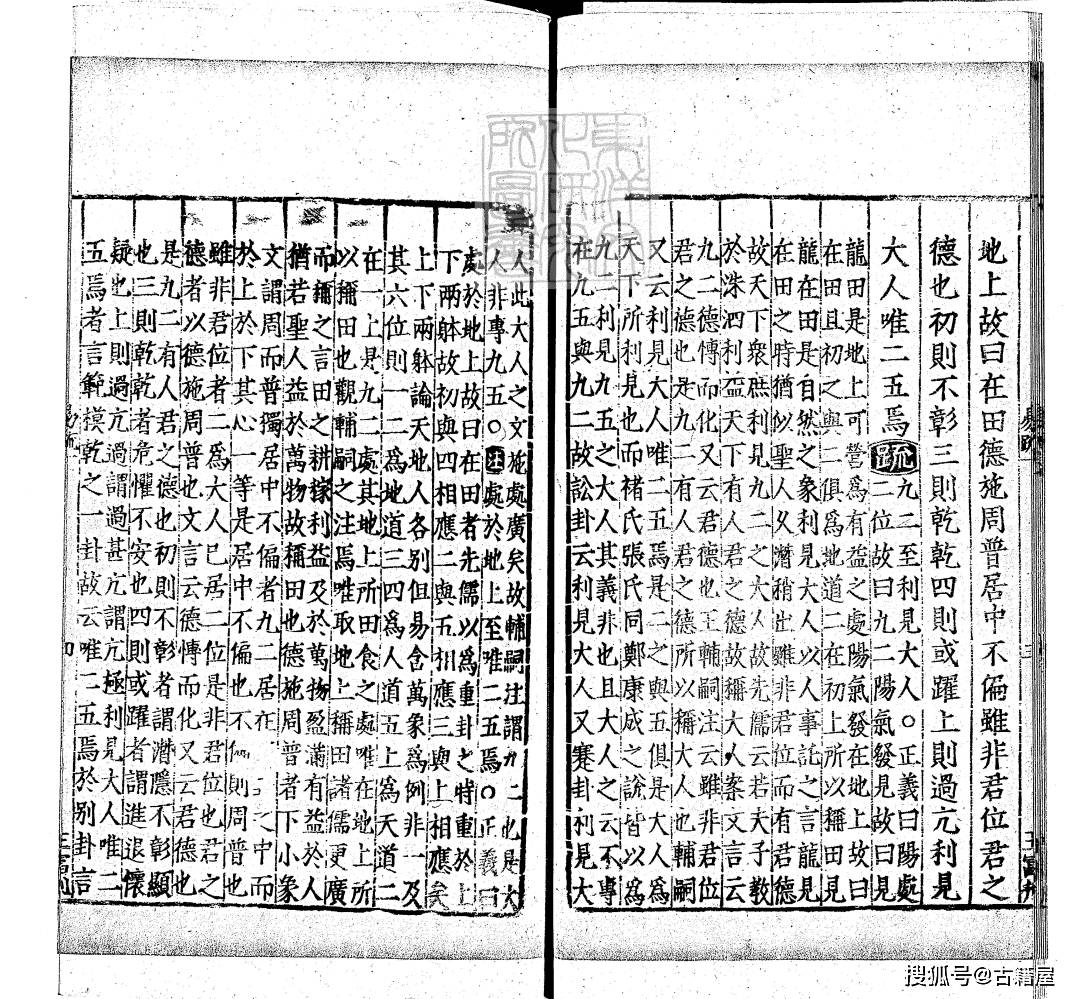 地上故曰在田德施周普居中不偏雖非君位君之
德也初則不彰三則乾乾四則或躍上則過亢利見
大人唯二五焉疏九二至利見大人○正義曰陽處
二位故曰九二陽氣發見故曰見
龍田是地上可營爲有益之處陽氣發在地上故曰
在田且初之與二俱爲地道二在初上所以稱田見
龍在田是自然之象利見大人以人事託之言龍見
在田之時猶似聖人久潛稍出雖非君位而有君德
故天下衆庶利見九二之大人故先儒云若夫子教
於洙泗利益天下有人君之德故稱大人案文言云
九二德博而化又云君德也王輔嗣注云雖非君位
君之德也是九二有人君之德所以稱大人也輔嗣
又云利見大人唯二五焉是二之與五俱是大人爲
天下所利見也而褚氏張氏同鄭康成之說皆以爲
九二利見九五之大人其義非也且大人之云不專
在九五與九二故訟卦云利見大人又蹇卦云利見大
人此大人之文施處廣矣故輔嗣注謂九二也是大
人非專九五○注處於地上至唯二五焉○正義曰
處於地上故曰在田者先儒以爲重卦之時重於上
下兩躰故初與四相應二與五相應三與上相應矣
上下兩躰論天地人各別但易含萬象爲例非一及
其六位則一二爲地道三四爲人道五上爲天道二
在一上是九二處其地上所田食之處唯在地上所
以稱田也觀輔嗣之注焉唯取地上稱田諸儒更廣
而稱之言田之耕稼利益及於萬物盈滿有益於人
猶若聖人益於萬物故稱田也德施周普者下小象
文謂周而普獨居中不偏者九二居在之中而
於上於下其心一等是居中不偏也不則周普也
雖非君位者二爲大人已居二位是非君位也君之
德者以德施周普也文言云德博而化又云君德也
是九二有人君之德也初則不彰者謂潛隱不彰顯
也三則乾乾者危懼不安也四則或躍者謂進退懷
疑也上則過亢過謂過甚亢謂亢極利見大人唯二
五焉者言範模乾之一卦故云唯二五焉於別卦言
搜狐号@古籍屋